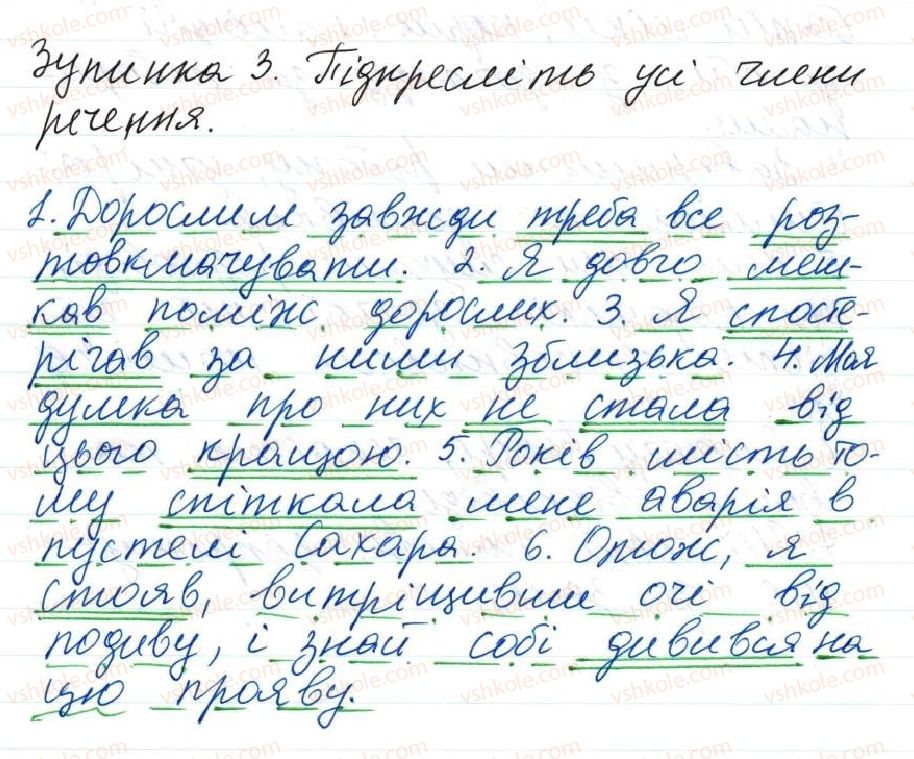 Зупинка 3. Підкресліть усі члени
речення.
1. Дорослим завжди треба все роз-
товкмачувати. 2. Я довго меш-
кав поміж дорослих. 3. Я спосте-
рігав за ними зблизька. 4. Моя
думка про них не стала від
цього кращою. 5. Років шість то-
му спіткала мене аварія в
пустелі Сахара. 6. Отож, я
стояв, витріщивши очі від
подиву, і знай собі дивився на
цю прояву.